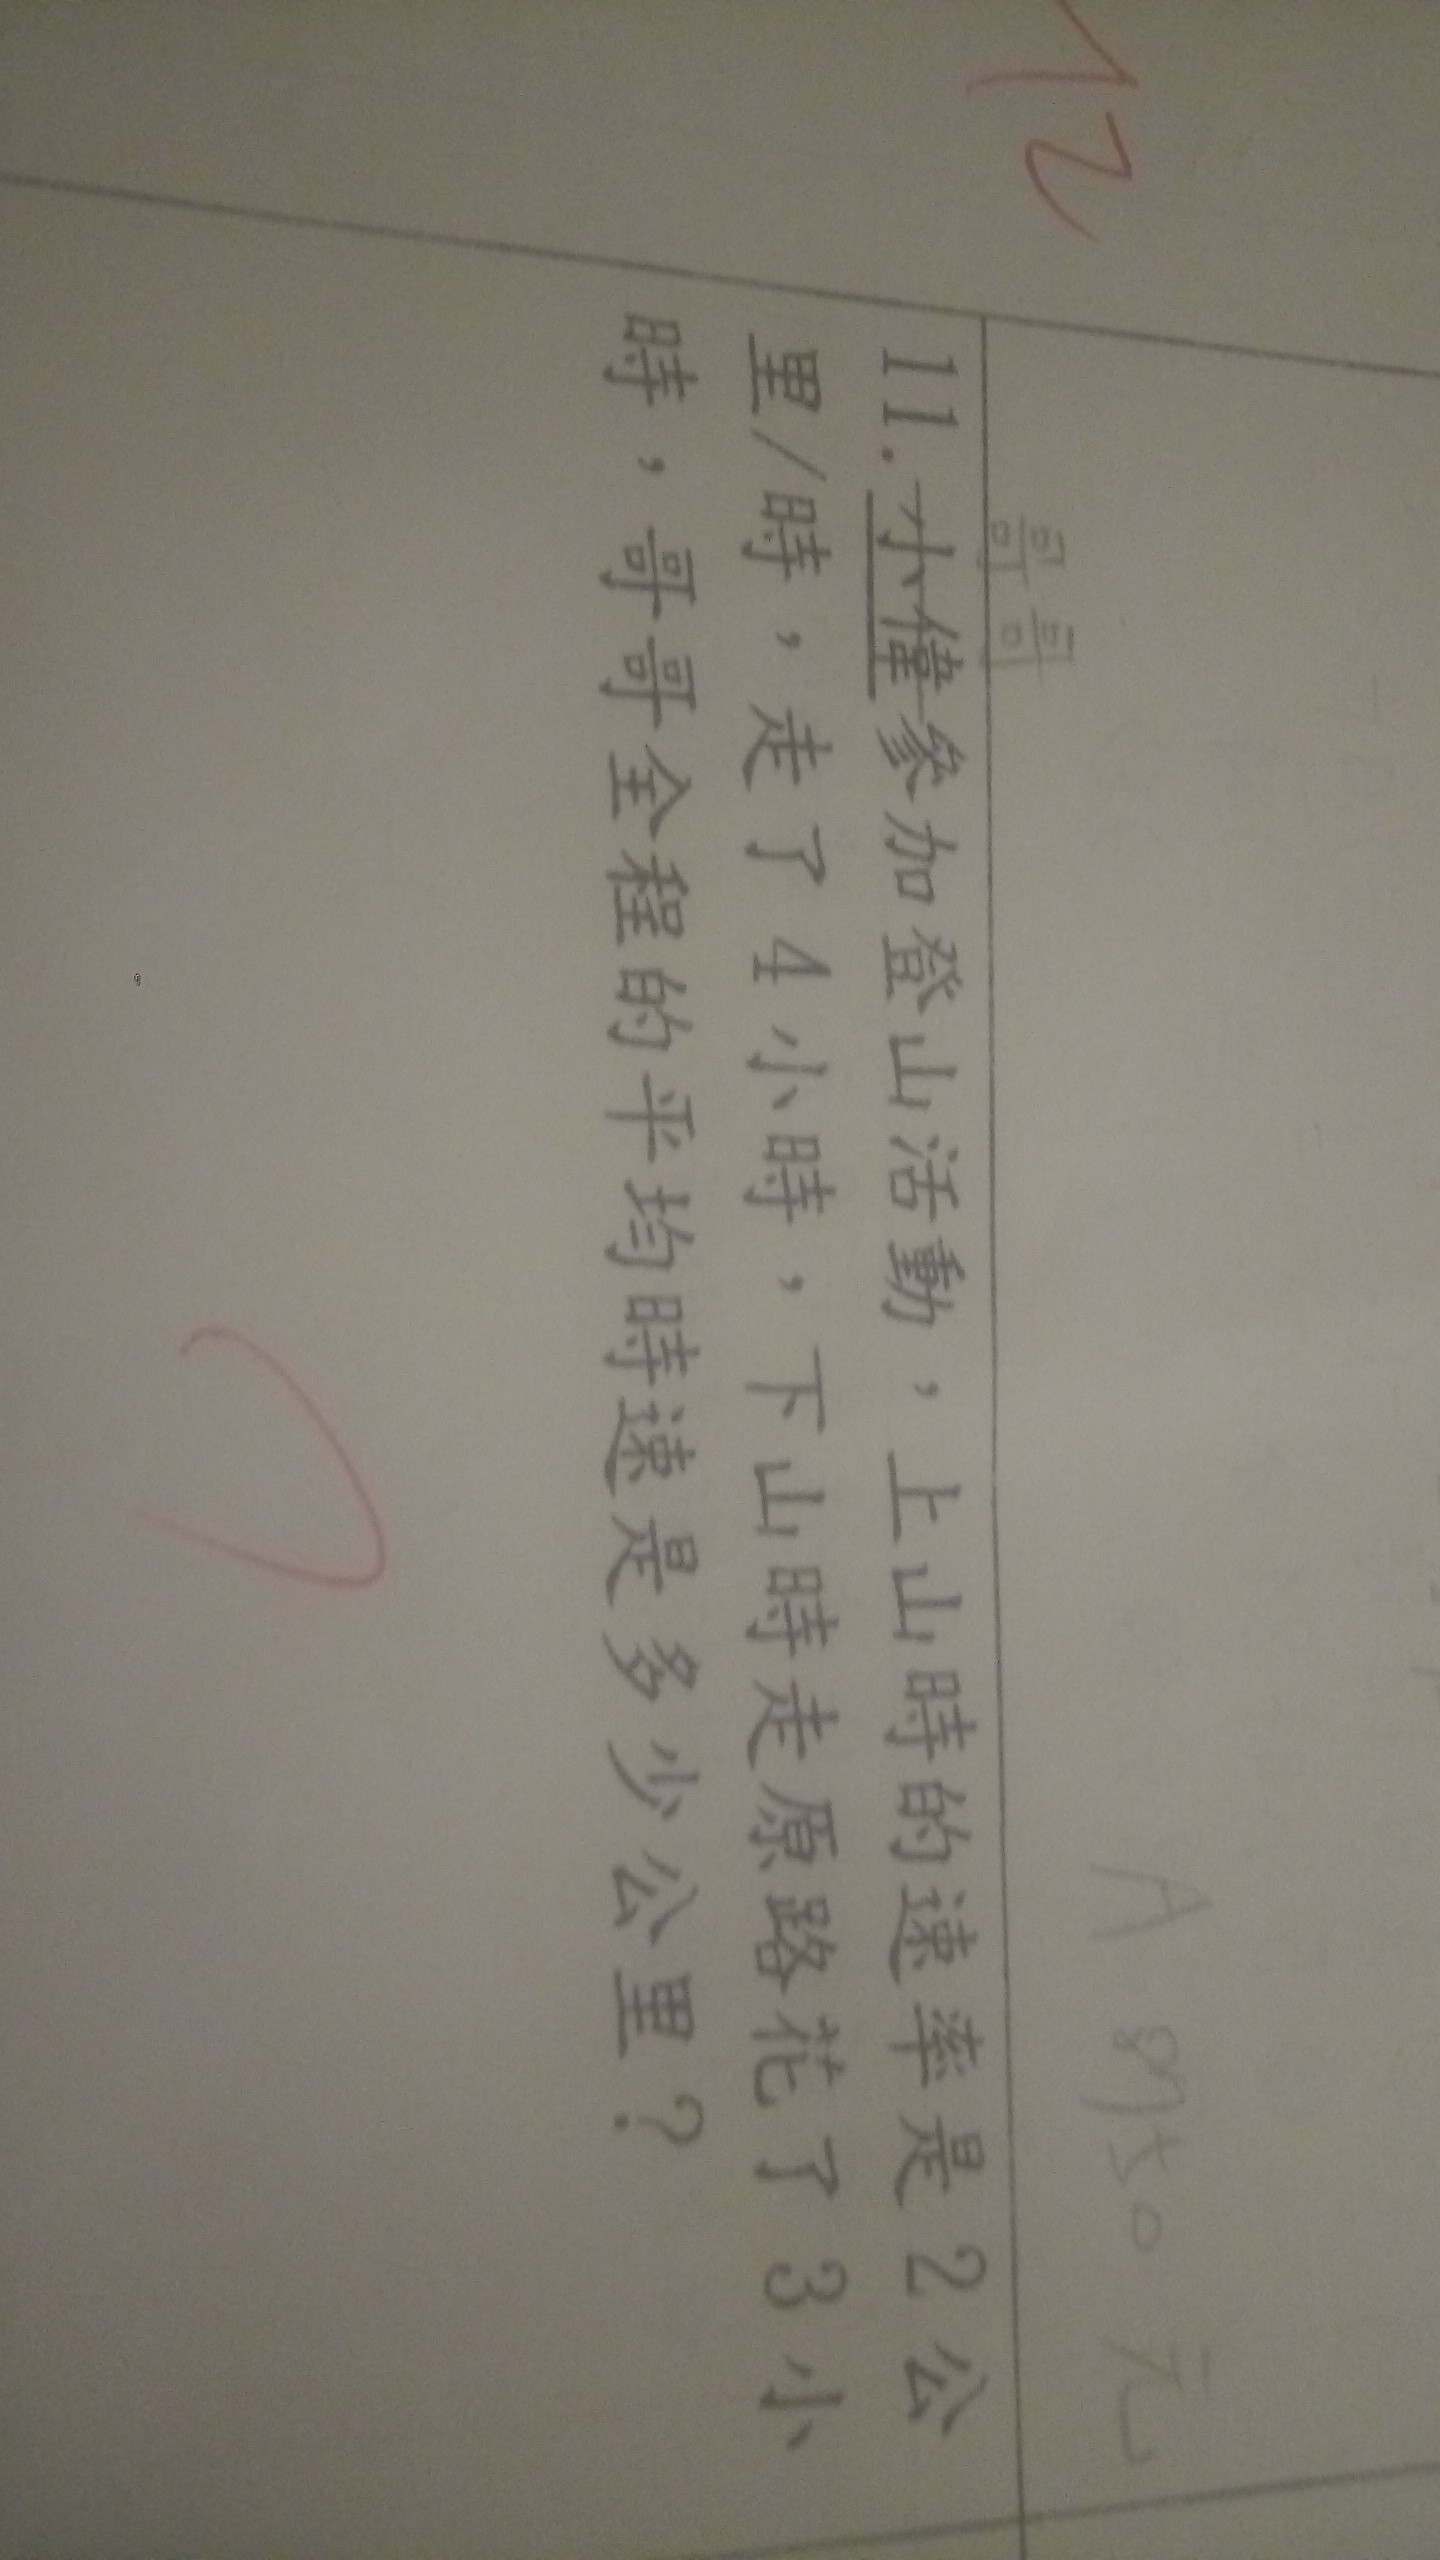 12
A 850元
哥哥
11.小偉參加登山活動，上山時的速率是2公
里/時，走了4小時，下山時走原路花了3小
時，哥哥全程的平均時速是多少公里？